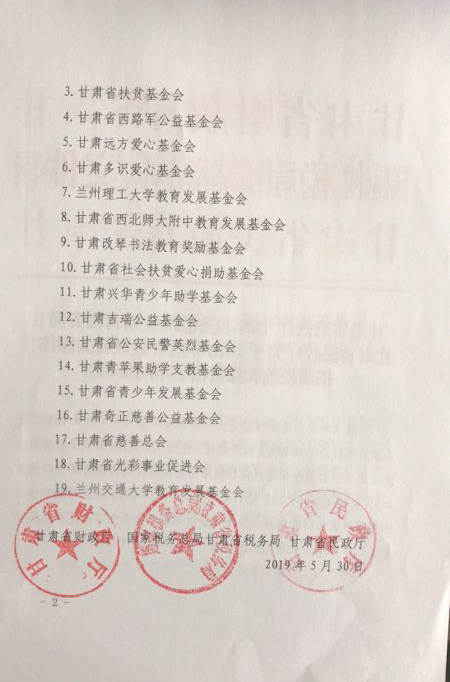 3. 甘肃省扶贫基金会
4. 甘肃省西路军公益基金会
5. 甘肃远方爱心基金会
6. 甘肃多识爱心基金会
7. 兰州理工大学教育发展基金会
8. 甘肃省西北师大附中教育发展基金会
9. 甘肃改琴书法教育奖励基金会
10. 甘肃省社会扶贫爱心捐助基金会
11. 甘肃兴华青少年助学基金会
12. 甘肃吉瑞公益基金会
13. 甘肃省公安民警英烈基金会
14. 甘肃青苹果助学支教基金会
15. 甘肃省青少年发展基金会
16. 甘肃奇正慈善公益基金会
17. 甘肃省慈善总会
18. 甘肃省光彩事业促进会
19. 兰州交通大学教育发展基金会
甘肃省财政厅 国家税务总局甘肃省税务局 甘肃省民政厅
2019 年 5 月 30 日
- 2 -
甘肃省财政厅
国家税务总局甘肃省税务局
甘肃省民政厅